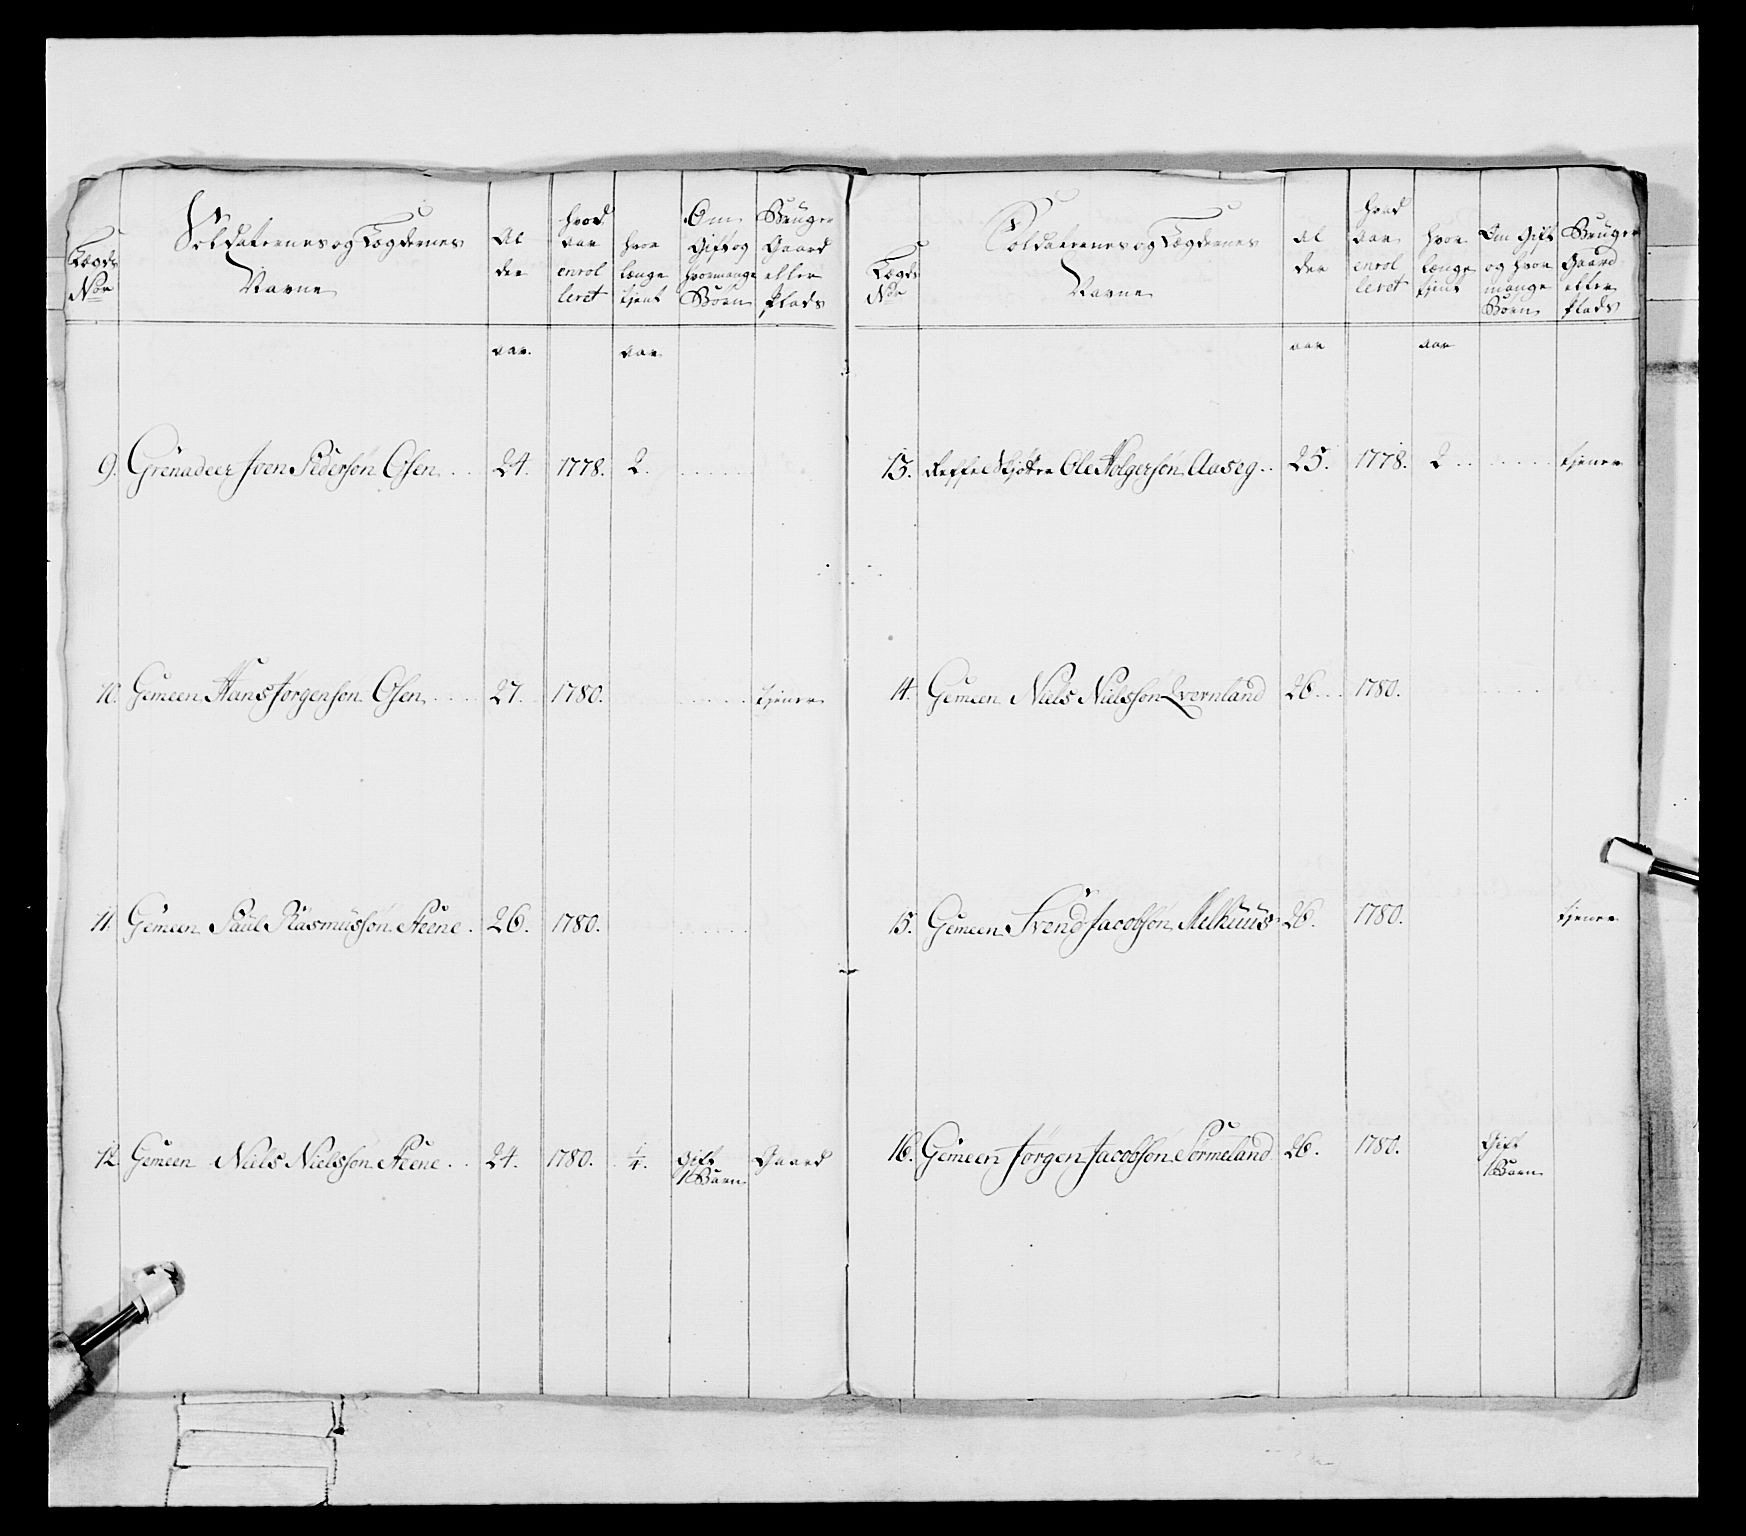 Lægds
No.
Soldaternes og Lægdernes
Navne
Al
der
hvad
aar
enrol
leret
hvor
længe
tjent
Om
Gift og
hvormange
Børn
Bruger
Gaard
eller
Plads
aar.
aar
9. Grenadeer Iven Pedersøn Osen 24. 1778. 2.
10. Gemeen Hans Jørgensøn Osen 27. 1780. tjener
11. Gemeen Paul Rasmussøn Steene. 26. 1780.
12. Gemeen Niels Nielssøn Steene. 24. 1780. ¼. Gift Gaard
1 Barn
Lægds
No.
Soldaternes og Lægdernes
Navne
Al
der
hvad
aar
enrol
leret
hvor
længe
tjent
Om Gift
og hvor
mange
Børn
Bruger
Gaard
eller
Plads
aar
aar
13. Ole Holgersøn Aaseg 25. 1778. 2 tjener
14. Gemeen Niels Nielssøn 26 1780.
15. Gemeen Svend Jacobsøn Melhuus 26. 1780. tjener
16. Gemeen Jørgen Jacobsøn Sørmeland 26. 1780. Gift
1 Barn